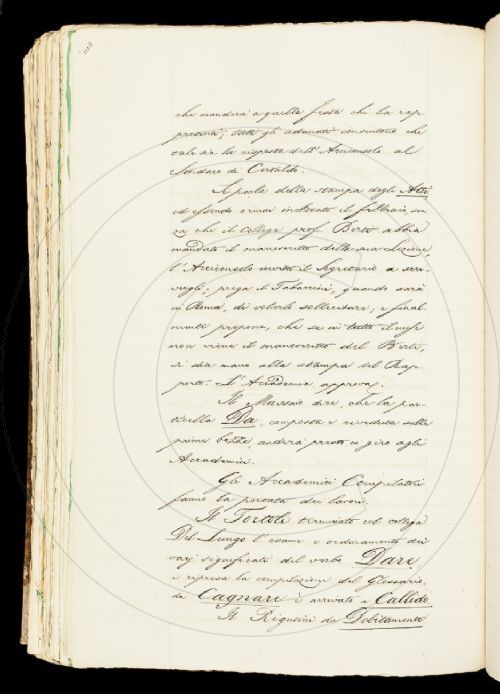 che manderà a quella festa chi la rap-
presenti; tutti gli adunati consentono che
tale sia la risposta dell'Arciconsolo al
Sindaco di Certaldo.
Si parla della stampa degli Atti,
ed essendo ormai inoltrato il febbraio, sen
za che il collega prof. Berti abbia
mandato il manoscritto della sua Lezione,
l'Arciconsolo invita il Segretario a scri-
vergli; prega il Tabarrini, quando sarà
in Roma, di volerlo sollecitare; e final-
mente propone, che se in tutto il mese
non viene il manoscritto del Berti,
si dia mano alla stampa del Rap-
porto. L'Accademia approva.
Il Mussonio dice, che la par-
ticella Da, composta e riveduta sulle
prime bozze andrà presto in giro agli
Accademici.
Gli Accademici Compilatori
fanno la portata dei lavori.
Il Tortoli terminato col collega
Del Lungo l'esame e ordinamento dei
varj significati del verbo Dare,
e ripresa la compilazione del Glossario,
da Cagnare è arrivato a Callido.
Il Rigutini da Debitamente